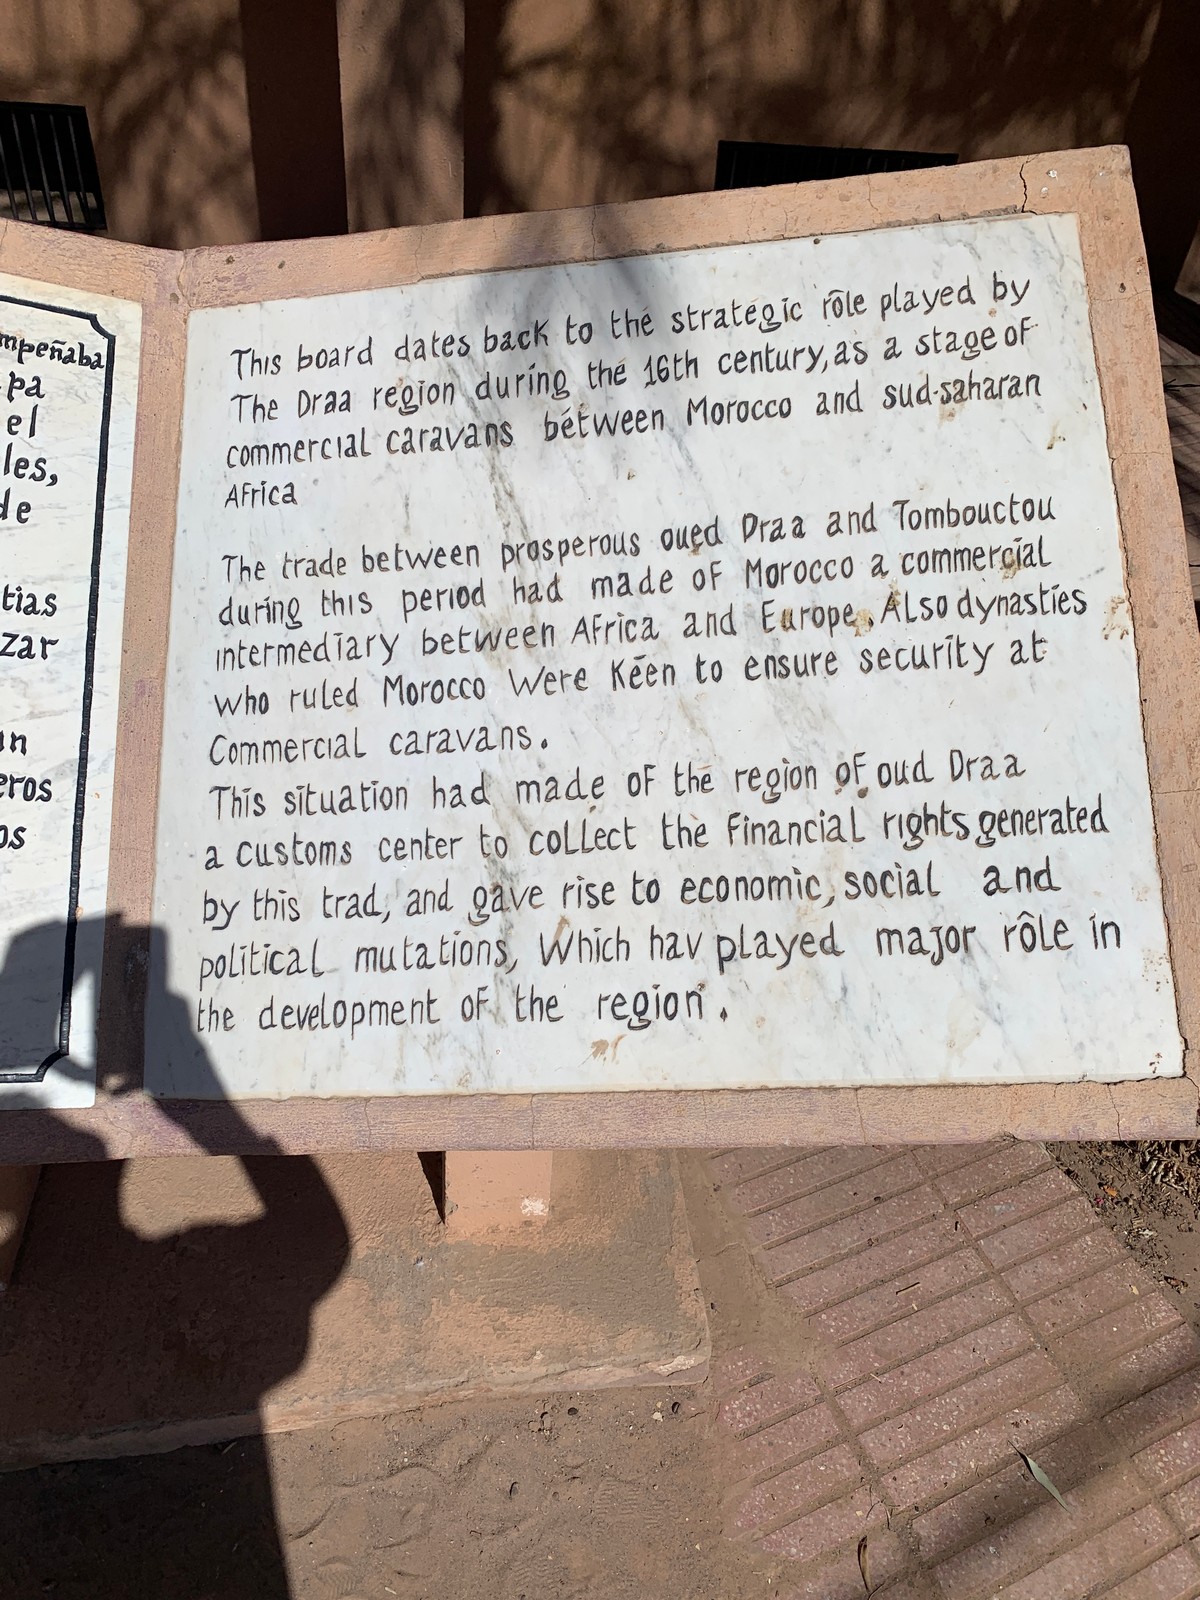 mpeñaba
pa
el
les,
de
tias
zar
un
eros
os
This board dates back to the strategic rôle played by
The Draa region during the 16th century, as a stage of
commercial caravans between Morocco and sud-saharan
Africa
The trade between prosperous oued Draa and Tombouctou
during this period had made of Morocco a commercial
intermediary between Africa and Europe. Also dynasties
who ruled Morocco Were Keen to ensure security at
Commercial caravans.
This situation had made of the region of oud Draa
a customs center to collect the Financial rights generated
by this trad, and gave rise to economic, social and
political mutations, Which hav played major rôle in
the development of the region.